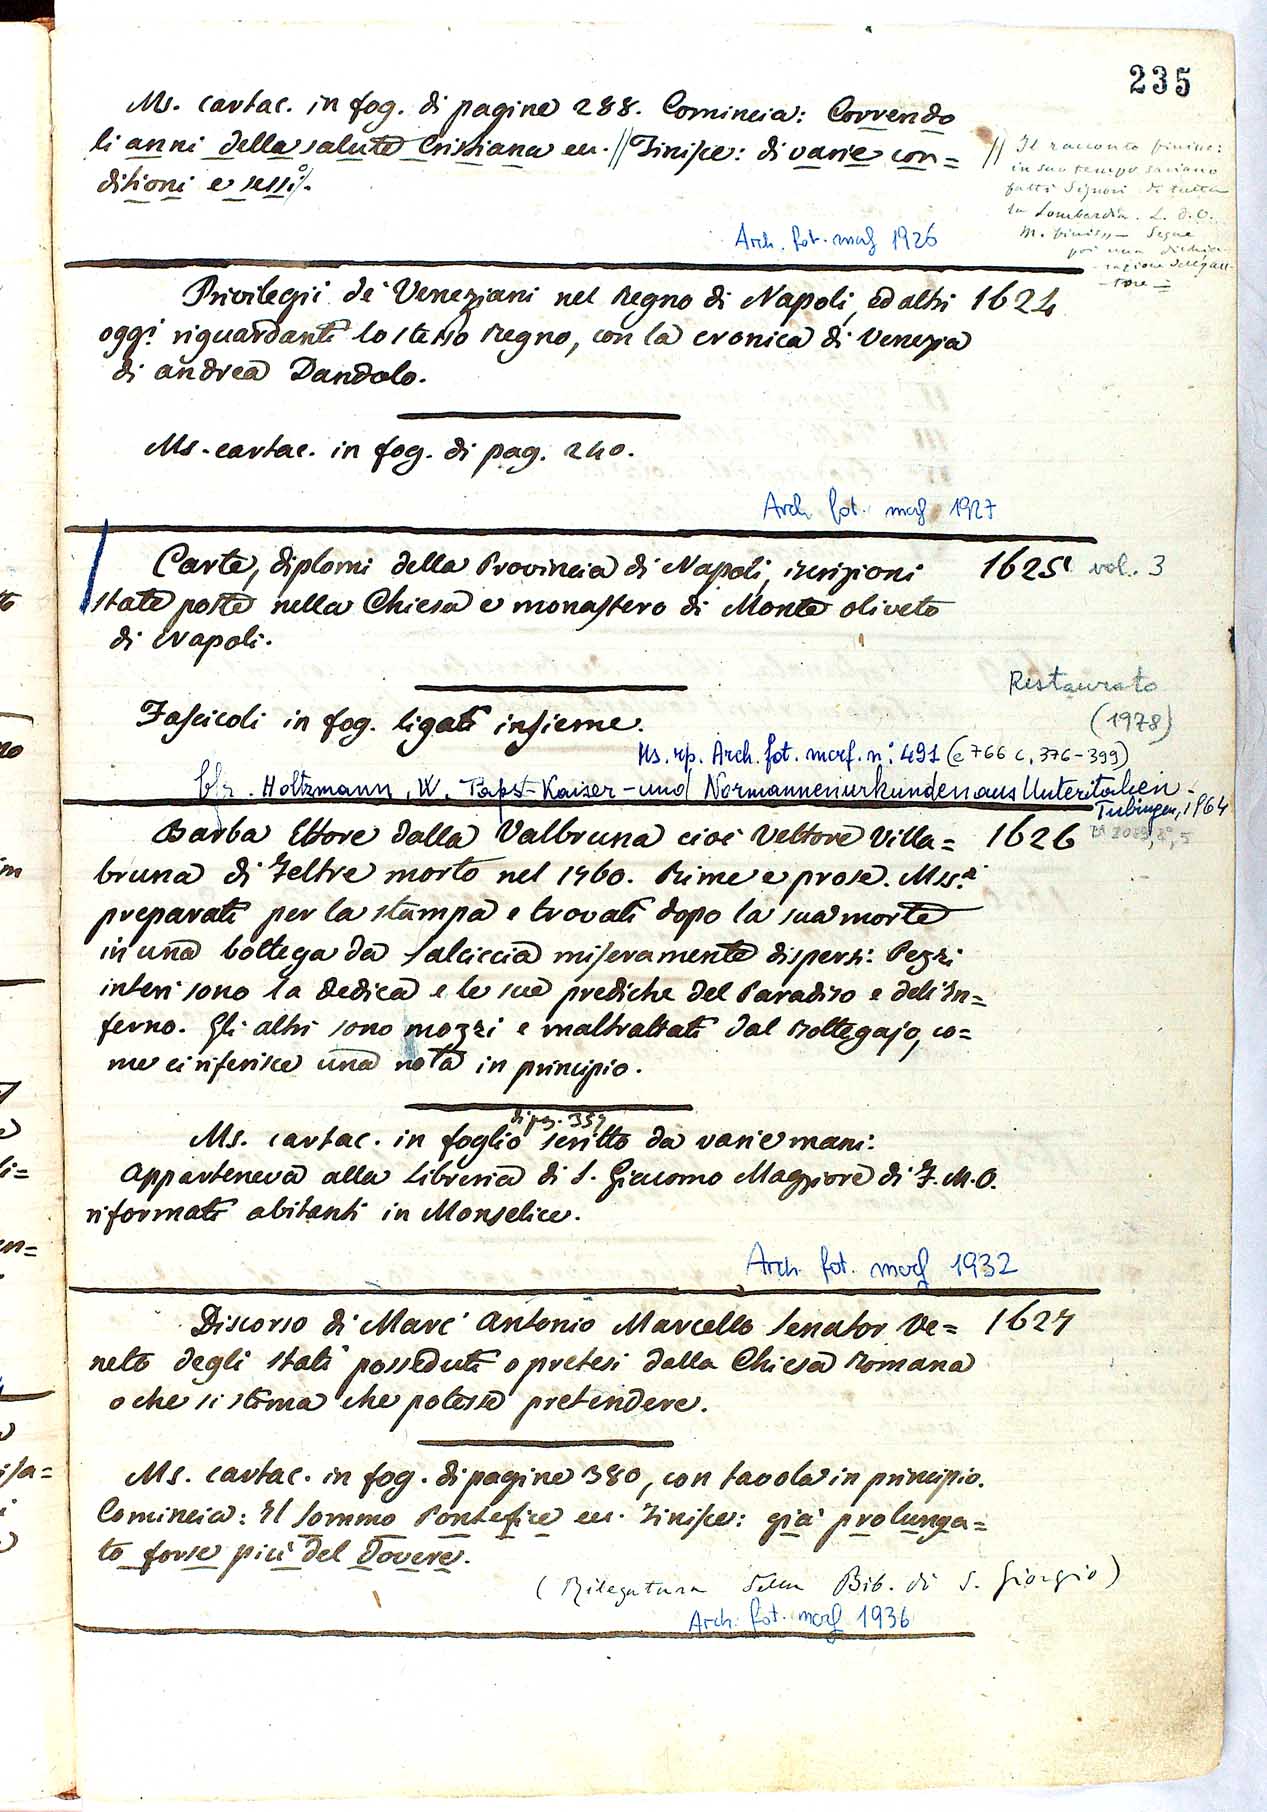 235
Ms. cartac. in fog. di pagine 288. Comincia: Correndo
li anni della salute Cristiana ecc. // Finisce: di varie con=
ditioni e sessi.
// Il racconto finisce:
in suo tempo saviano
fatti Signori di tutta
la Lombardia. L. D. O.
M. finis,, - Segue
poi una dichia-
-razione dell'
-tore -
Arch. fot. marf 1926
Privilegii de' Veneziani nel Regno di Napoli, ed altri 1624
oggi riguardanti lo stesso Regno, con la cronica di Venezia
di andrea Dandolo.
Ms. cartac. in fog. di pag. 240.
Arch fot. marf 1927
Carte, diplomi della Provincia di Napoli, iscrizioni 1625 vol. 3
state poste nella Chiesa e monastero di Monte oliveto
di Napoli.
Restaurato
(1978)
Fascicoli in fog. ligati insieme.
Ms. rp. Arch. fot. marf. n. 491 (e 766 c. 376-399)
Cfr. Holtzmann, W. Papst-Kaiser-und Normannenurkunden aus Unteritalien -
Tubingen, 1964
Barba Ettore dalla Valbruna cioè Vettore Villa= 1626
bruna di Feltre morto nel 1760. Rime e prose. Mss.i
preparati per la stampa e trovati dopo la sua morte
in una bottega da salciccia miseramente dispersi: Pezzi
interi sono la dedica e le sue prediche del Paradiso e dell'In=
ferno. Gli altri sono mozzi e maltrattati dal Bottegajo, co=
me ci riferisce una nota in principio.
di pag. 357
Ms. cartac. in foglio scritto da varie mani.
Apparteneva alla Libreria di S. Giacomo Maggiore di F. M. O.
riformati abitanti in Monselice.
Arch. fot. marf 1932
Discorso di Marc' Antonio Marcello Senator Ve= 1627
neto degli stati posseduti o pretesi dalla Chiesa Romana
o che si stima che potesse pretendere.
Ms. cartac. in fog. di pagine 380, con tavola in principio.
Comincia: Il sommo Pontefice ecc. Finisce: già prolunga=
to forse più del Dovere.
(Rilegatura della Bib. di S. Giorgio)
Arch. fot. marf 1936